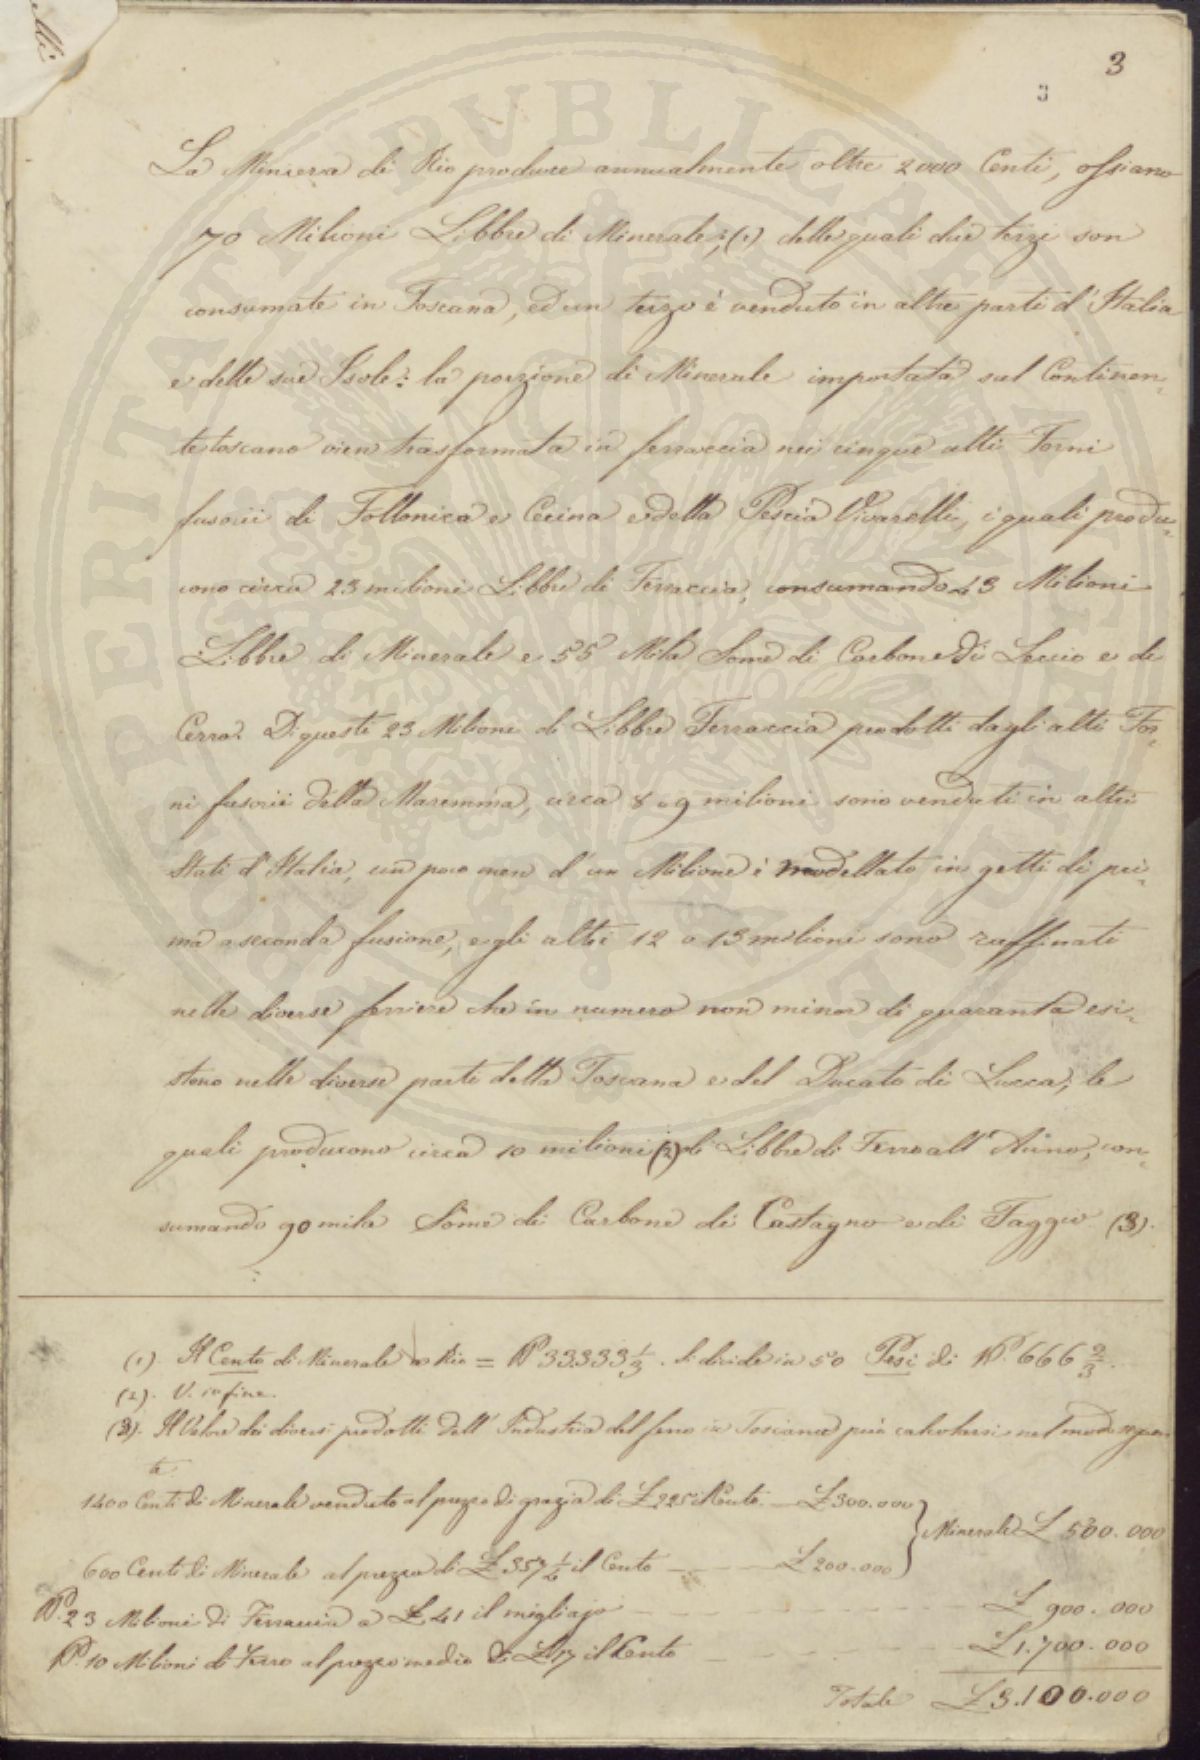 3
3
La Miniera di Rio produce annualmente oltre 2000 Centi, ossiano
70 Milioni Libbre di Minerale; (1) delle quali due terzi son
consumate in Toscana, ed un terzo è venduto in altre parti d'Italia
e delle sue Isole: la porzione di Minerale importata sul Continen-
te toscano vien trasformata in ferraccia nei cinque alti Forni
fusorii di Follonica e Cecina e della Pescia Vivarelli, i quali produ-
cono circa 23 milioni Libbre di Ferraccia, consumando 43 Milioni
Libbre di Minerale e 55 Mila Some di Carbone di Leccio e di
Cerro. Di questi 23 Milioni di Libbre Ferraccia prodotti dagli alti For-
ni fusorii della Maremma, circa 8 o 9 milioni sono venduti in altri
Stati d'Italia, un poco men d'un Milione è modellato in getti di pri-
ma a seconda fusione, e gli altri 12 o 13 milioni sono raffinati
nelle diverse ferriere che in numero non minor di quaranta esi-
stono nelle diverse parti della Toscana e del Ducato di Lucca, le
quali producono circa 10 milioni (2) di Libbre di Ferro all'Anno, con-
sumando 90 mila Some di Carbone di Castagno e di Faggio (3).
(1). Il Cento di Minerale a Rio = ℔ 33333 1/3. Si divide in 50 Pesi di ℔. 666 2/3.
(2). V. in fine.
(3). Il Valore dei diversi prodotti dell'Industria del ferro in Toscana può calcolarsi nel modo seguen
te
1400 Centi di Minerale venduto al prezzo di grazia di £ 225 il Cento. — £ 300.000
Minerale £ 500.000
600 Centi di Minerale al prezzo di £ 357 1/2 il Cento — £ 200.000
℔. 23 Milioni di Ferraccia a £ 41 il migliajo — £ 900.000
℔. 10 Milioni di Ferro al prezzo medio di £ 17 il Cento — £ 1.700.000
Totale £ 3.100.000